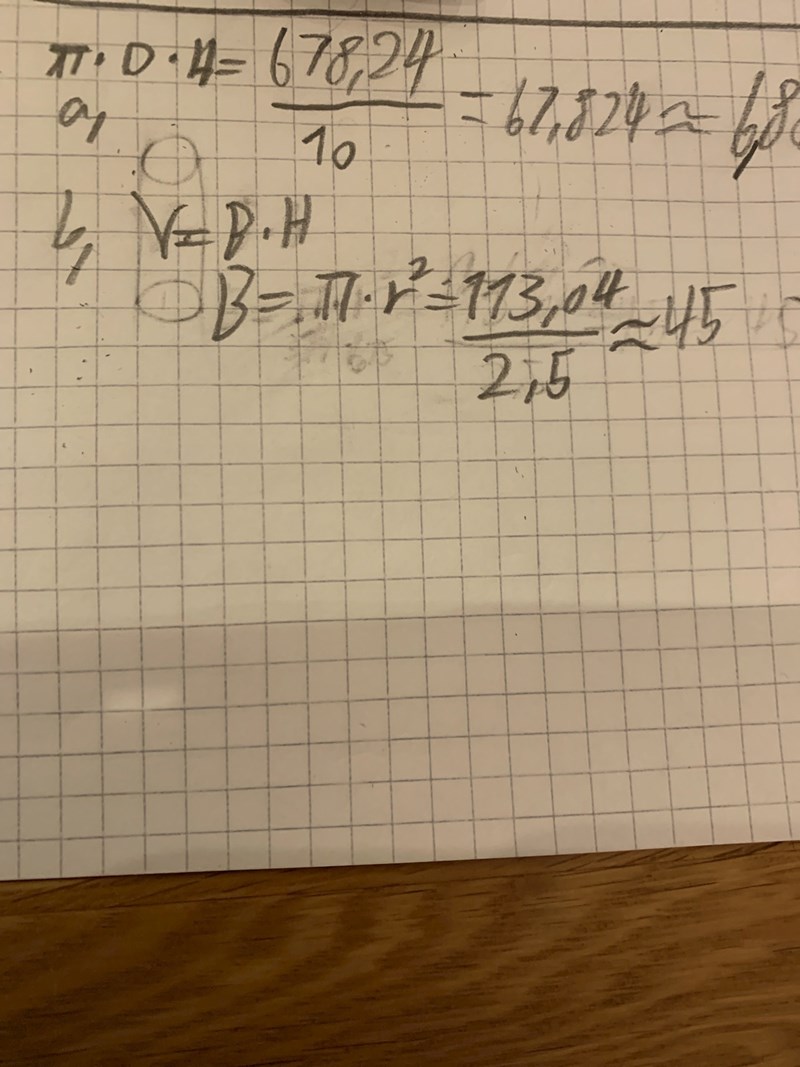 π · D · H = 678,24 / 10 = 67,824 ≈ 6,8
a,
b, V = B · H
B = π · r² = 113,04 / 2,5 ≈ 45